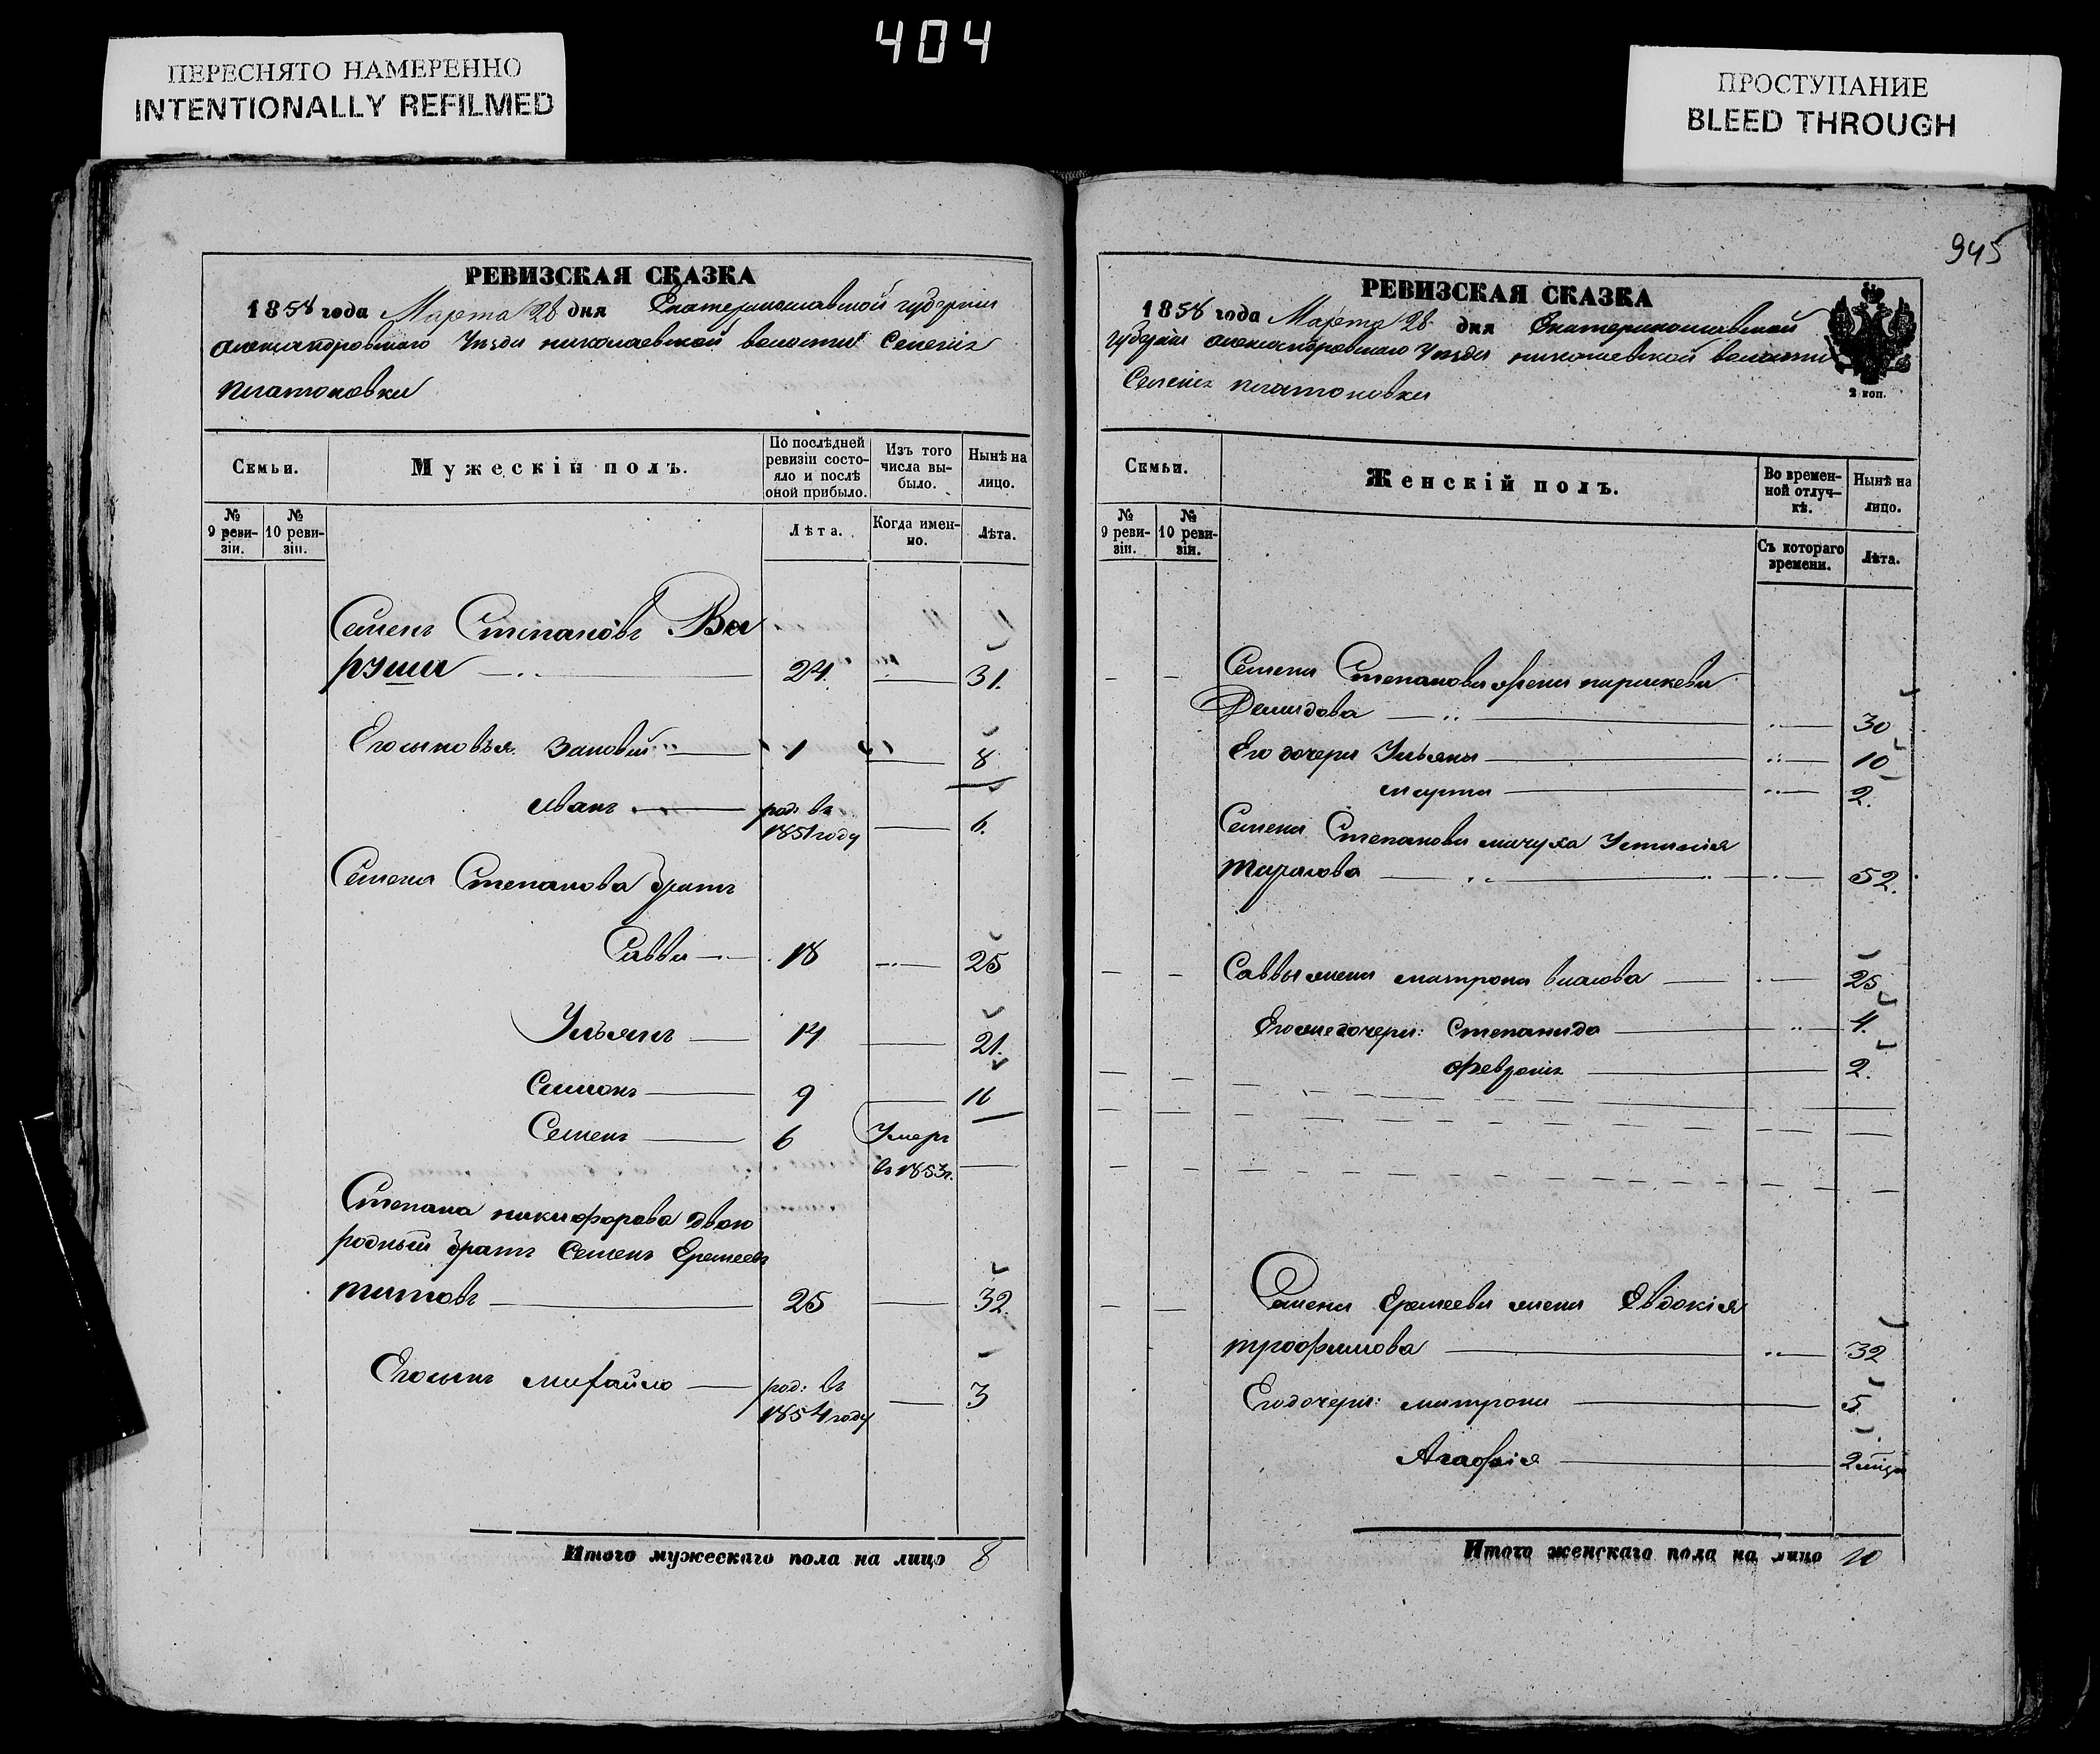 404
ПЕРЕСНЯТО НАМЕРЕННО
INTENTIONALLY REFILMED
ПРОСТУПАНИЕ
BLEED THROUGH
945
РЕВИЗСКАЯ СКАЗКА
1858 года Марта 28 дня Екатеринославской губерніи
Александровскаго Уѣзда николаевской волости Селенія
платоновки
Семьи.
Мужескій полъ.
По послѣдней ревизіи состояло и послѣ оной прибыло.
Изъ того числа выбыло.
Нынѣ на лицо.
№ 9 ревизіи.
№ 10 ревизіи.
Лѣта.
Когда именно.
Лѣта.
Семенъ Степановъ Ва
руша 24. 31.
Его сыновья Зиновій 1 8
Иванъ род: въ 1851 году 6.
Семена Степанова братъ
Савва 18 25
Ульянъ 14 21.
Симонъ 9 16
Семенъ 6 Умеръ въ 1853г.
Степана никифорова двою
родный братъ Семенъ Еремеевъ
титовъ 25 32.
Его сынъ михайло род: въ 1854 году 3
Итого мужескаго пола на лицо 8
РЕВИЗСКАЯ СКАЗКА
1858 года Марта 28 дня Екатеринославской
губерніи Александровскаго Уѣзда николаевской волости
Селенія платоновки
2 коп.
Семьи.
Женскій полъ.
Во временной отлучкѣ.
Нынѣ на лицо.
№ 9 ревизіи.
№ 10 ревизіи.
Съ котораго времени.
Лѣта.
Семена Степанова жена параскева
Демидова 30
Его дочери Ульяна 10
марта 2.
Семена Степанова мачуха Устинія
тарасова 52.
Саввы жена матрона власова 25
Его же дочери: Степанида 4.
Февронія 2.
Семена Еремеева жена Евдокія
трофимова 32
Его дочери: матрона 5
Агафія 2
Итого женскаго пола на лицо 10